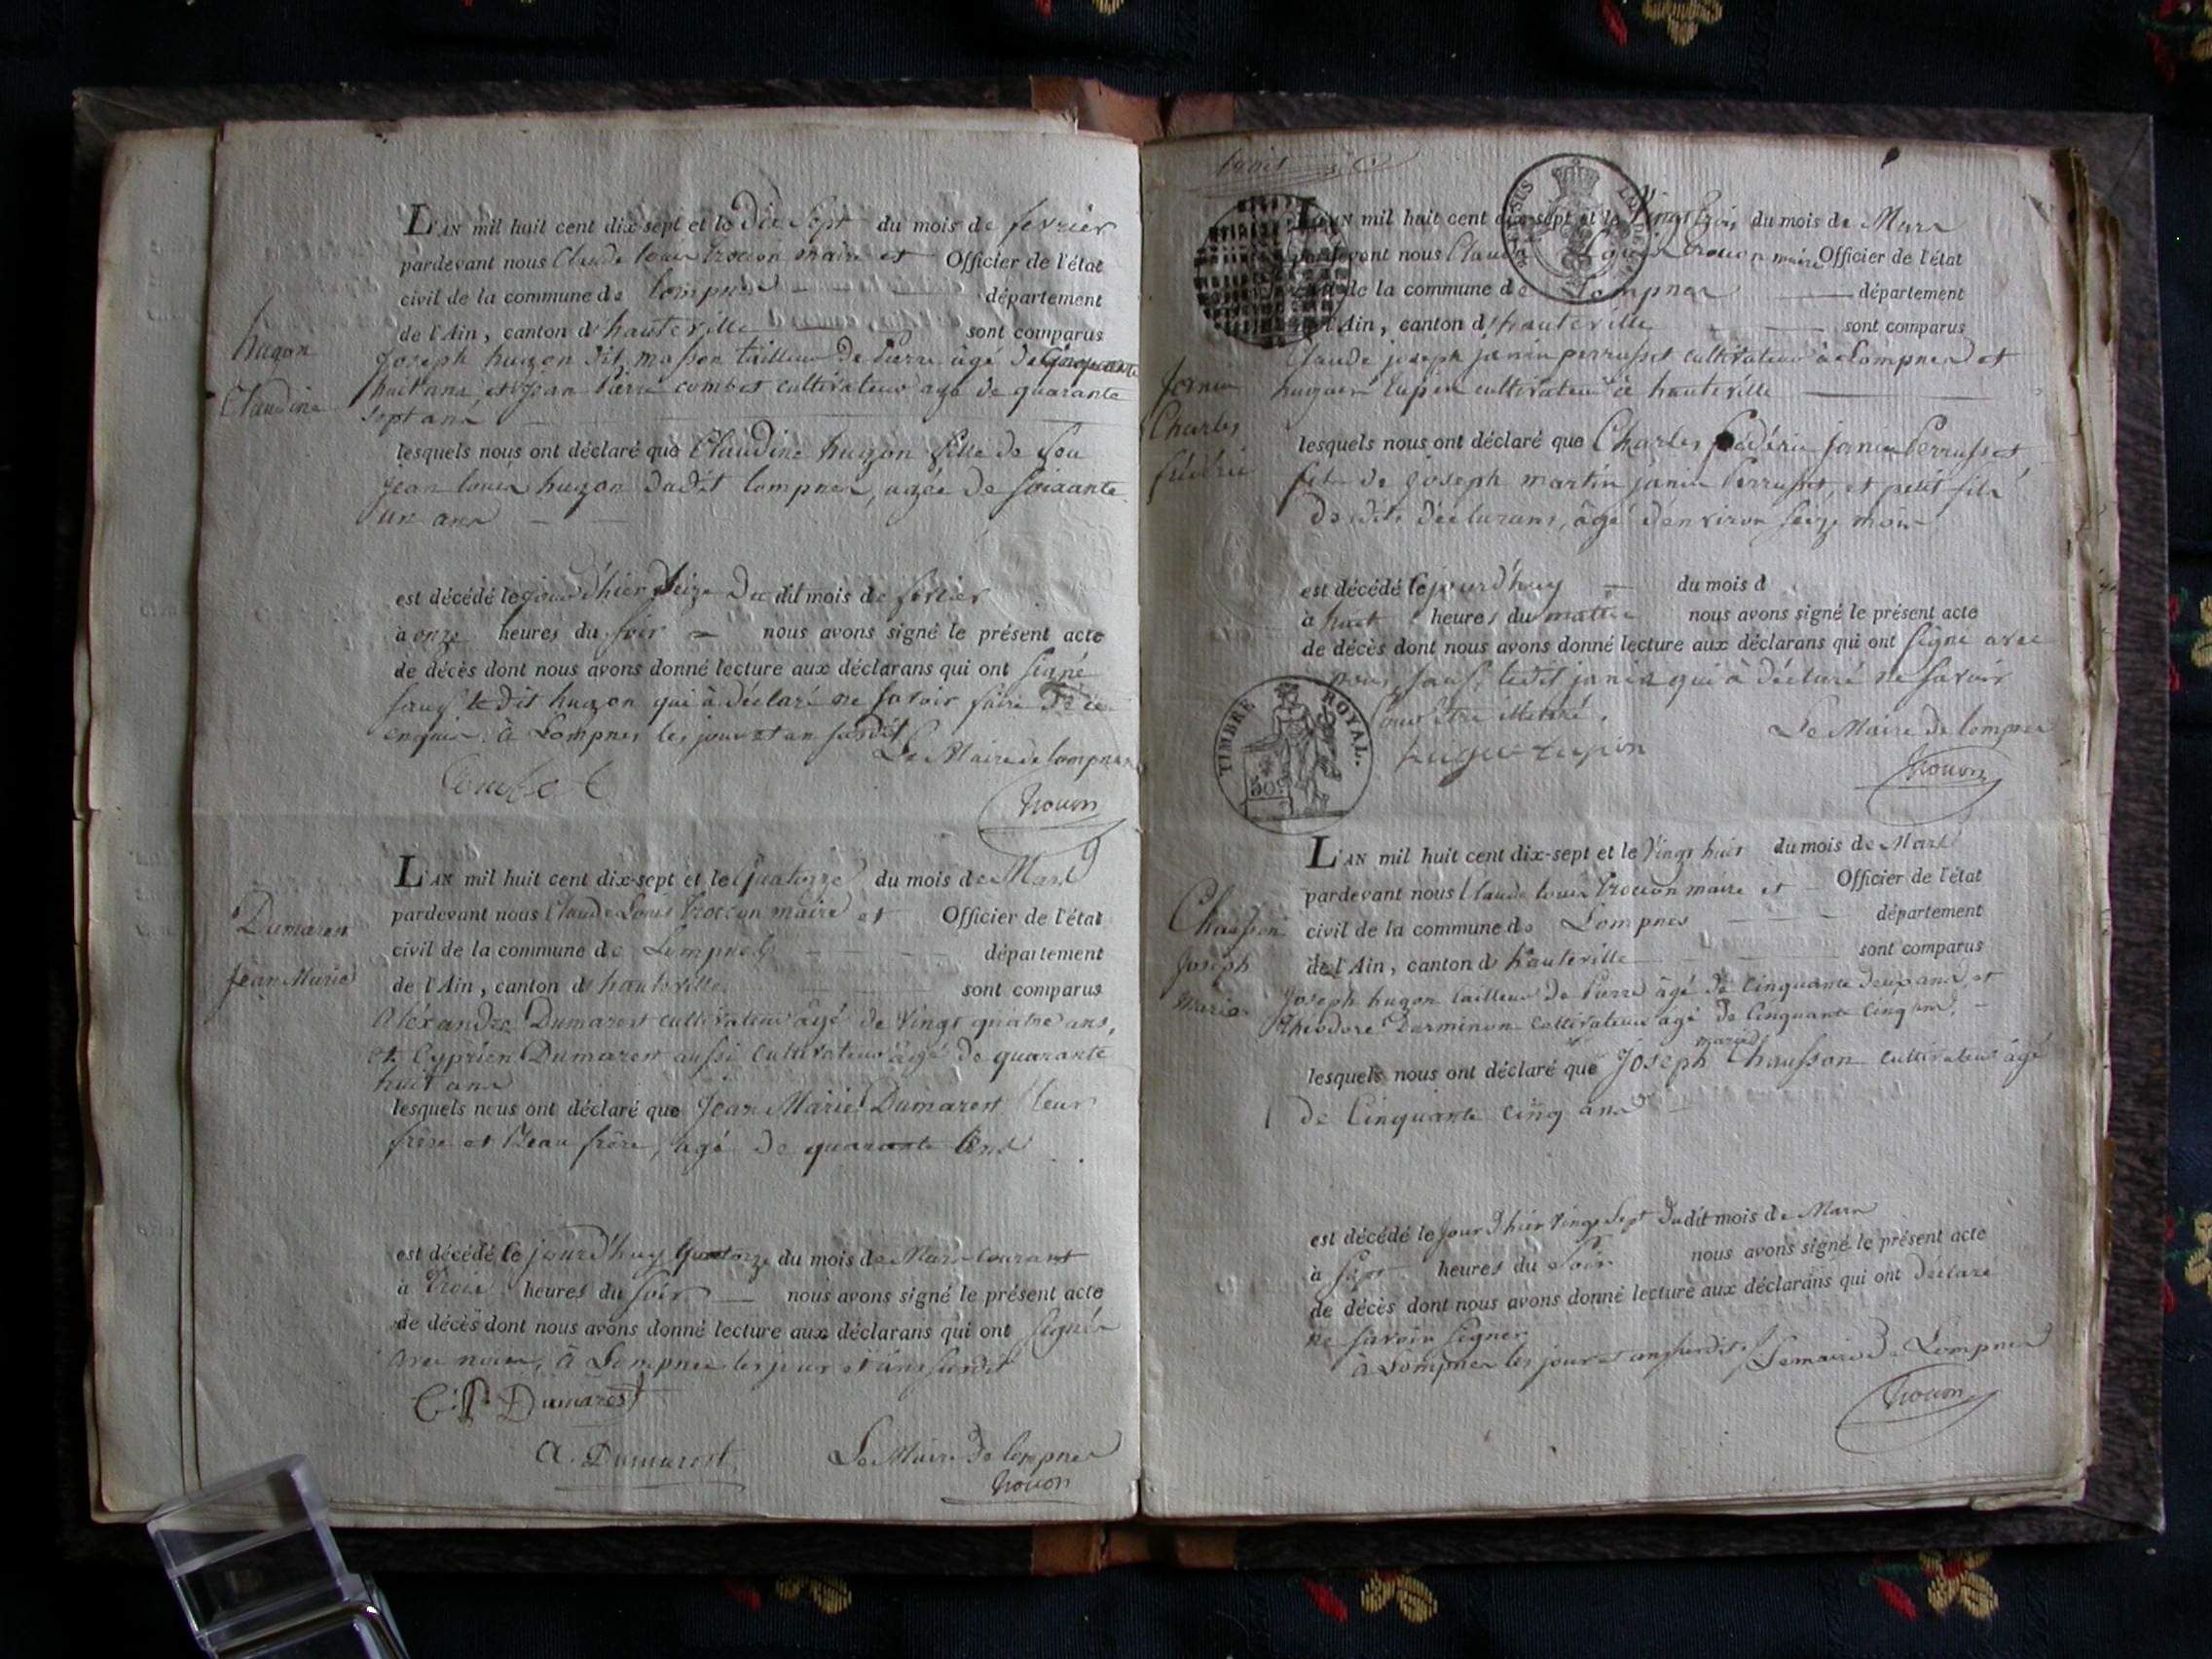 hugon
Claudine
L'AN mil huit cent dix-sept et le dix Sept du mois de fevrier
pardevant nous Claude louis trocon maire et Officier de l'état
civil de la commune de lompnes département
de l'Ain, canton d'hauteville sont comparus
joseph hugon dit masson tailleur de pierre âgé de Cinquante
huit ans, et jean Pierre combet cultivateur agé de quarante
sept ans
lesquels nous ont déclaré que Claudine hugon fille de feu
jean louis hugon dudit lompnes, agée de soixante
un ans
est décédé le jour d'hier Seize du dit mois de fevrier
à onze heures du soir nous avons signé le présent acte
de décès dont nous avons donné lecture aux déclarans qui ont signé
sauf le dit hugon qui à déclaré ne savoir faire de ce
enquis. à Lompnes les jour et an susdit
Le Maire de lompnes
Combet
Trocon
Dumarest
Jean Marie
L'AN mil huit cent dix-sept et le Quatorze du mois de Mars
pardevant nous Claude Louis Trocon maire et Officier de l'état
civil de la commune de Lompnes département
de l'Ain, canton d'hauteville sont comparus
Alexandre Dumarest cultivateur âgé de vingt quatre ans,
et Cyprien Dumarest aussi cultivateur âgé de quarante
huit ans
lesquels nous ont déclaré que Jean Marie Dumarest leur
frère et Beau frère, agé de quarante ans
est décédé le jourd'huy Quatorze du mois de Mars courant
à Trois heures du soir nous avons signé le présent acte
de décès dont nous avons donné lecture aux déclarans qui ont signés
avec nous, à Lompnes les jour et ans susdit
C. P. Dumarest
A. Dumarest
Le Maire de lompnes
Trocon
janin
Charles
frédéric
L'AN mil huit cent dix-sept et le Vingt trois du mois de Mars
pardevant nous Claude Louis trocon maire Officier de l'état
civil de la commune de Lompnes département
de l'Ain, canton d'hauteville sont comparus
Claude joseph janin perrusset cultivateur à Lompnes et
hugues lupin cultivateur à hauteville
lesquels nous ont déclaré que Charles frédéric janin Perrusset
fils de joseph martin janin Perrusset, et petit fils
desdits déclarans, âgé d'environ seize mois
est décédé le jourd'huy du mois d
à huit heures du matin nous avons signé le présent acte
de décès dont nous avons donné lecture aux déclarans qui ont signé avec
nous, sauf ledit janin qui à déclaré ne savoir
pour être illétéré.
TIMBRE ROYAL.
50
Le Maire de lompnes
hugue lupin
Trocon
Chausson
Joseph
Marie
L'AN mil huit cent dix-sept et le Vingt huit du mois de Mars
pardevant nous Claude louis Trocon maire et Officier de l'état
civil de la commune de Lompnes département
de l'Ain, canton d'hauteville sont comparus
Joseph hugon tailleur de Pierre âgé de cinquante deux ans, et
théodore Darminon cultivateur âgé de Cinquante cinq ans,
marie
lesquels nous ont déclaré que Joseph Chausson cultivateur âgé
de Cinquante cinq ans
est décédé le jour d'hier Vingt Sept dudit mois de Mars
à Sept heures du Soir nous avons signé le présent acte
de décès dont nous avons donné lecture aux déclarans qui ont déclaré
ne savoir signer
à Lompnes les jour et an susdits. Le maire de Lompnes
Trocon